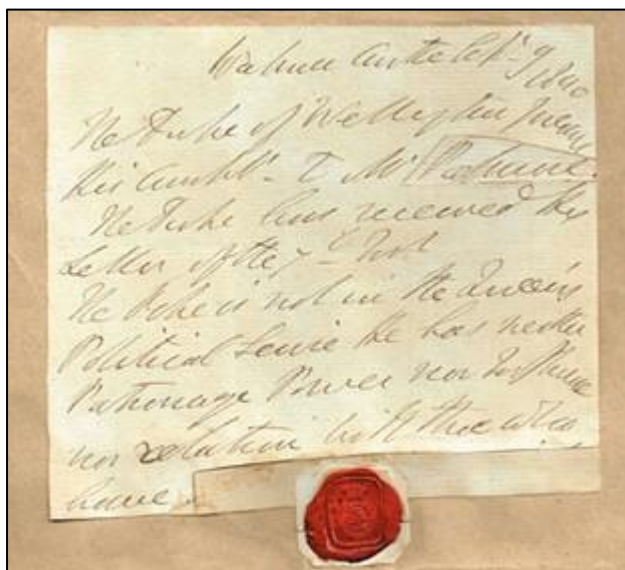 Walmer Castle Sepr. 9 1840
The Duke of Wellington presents
His Complts. to Mr
The Duke has received his
Letter of the 7th Inst
The Duke is not in the Queen's
Political Service He has neither
Patronage Power nor Influence
nor relation with those who
have.